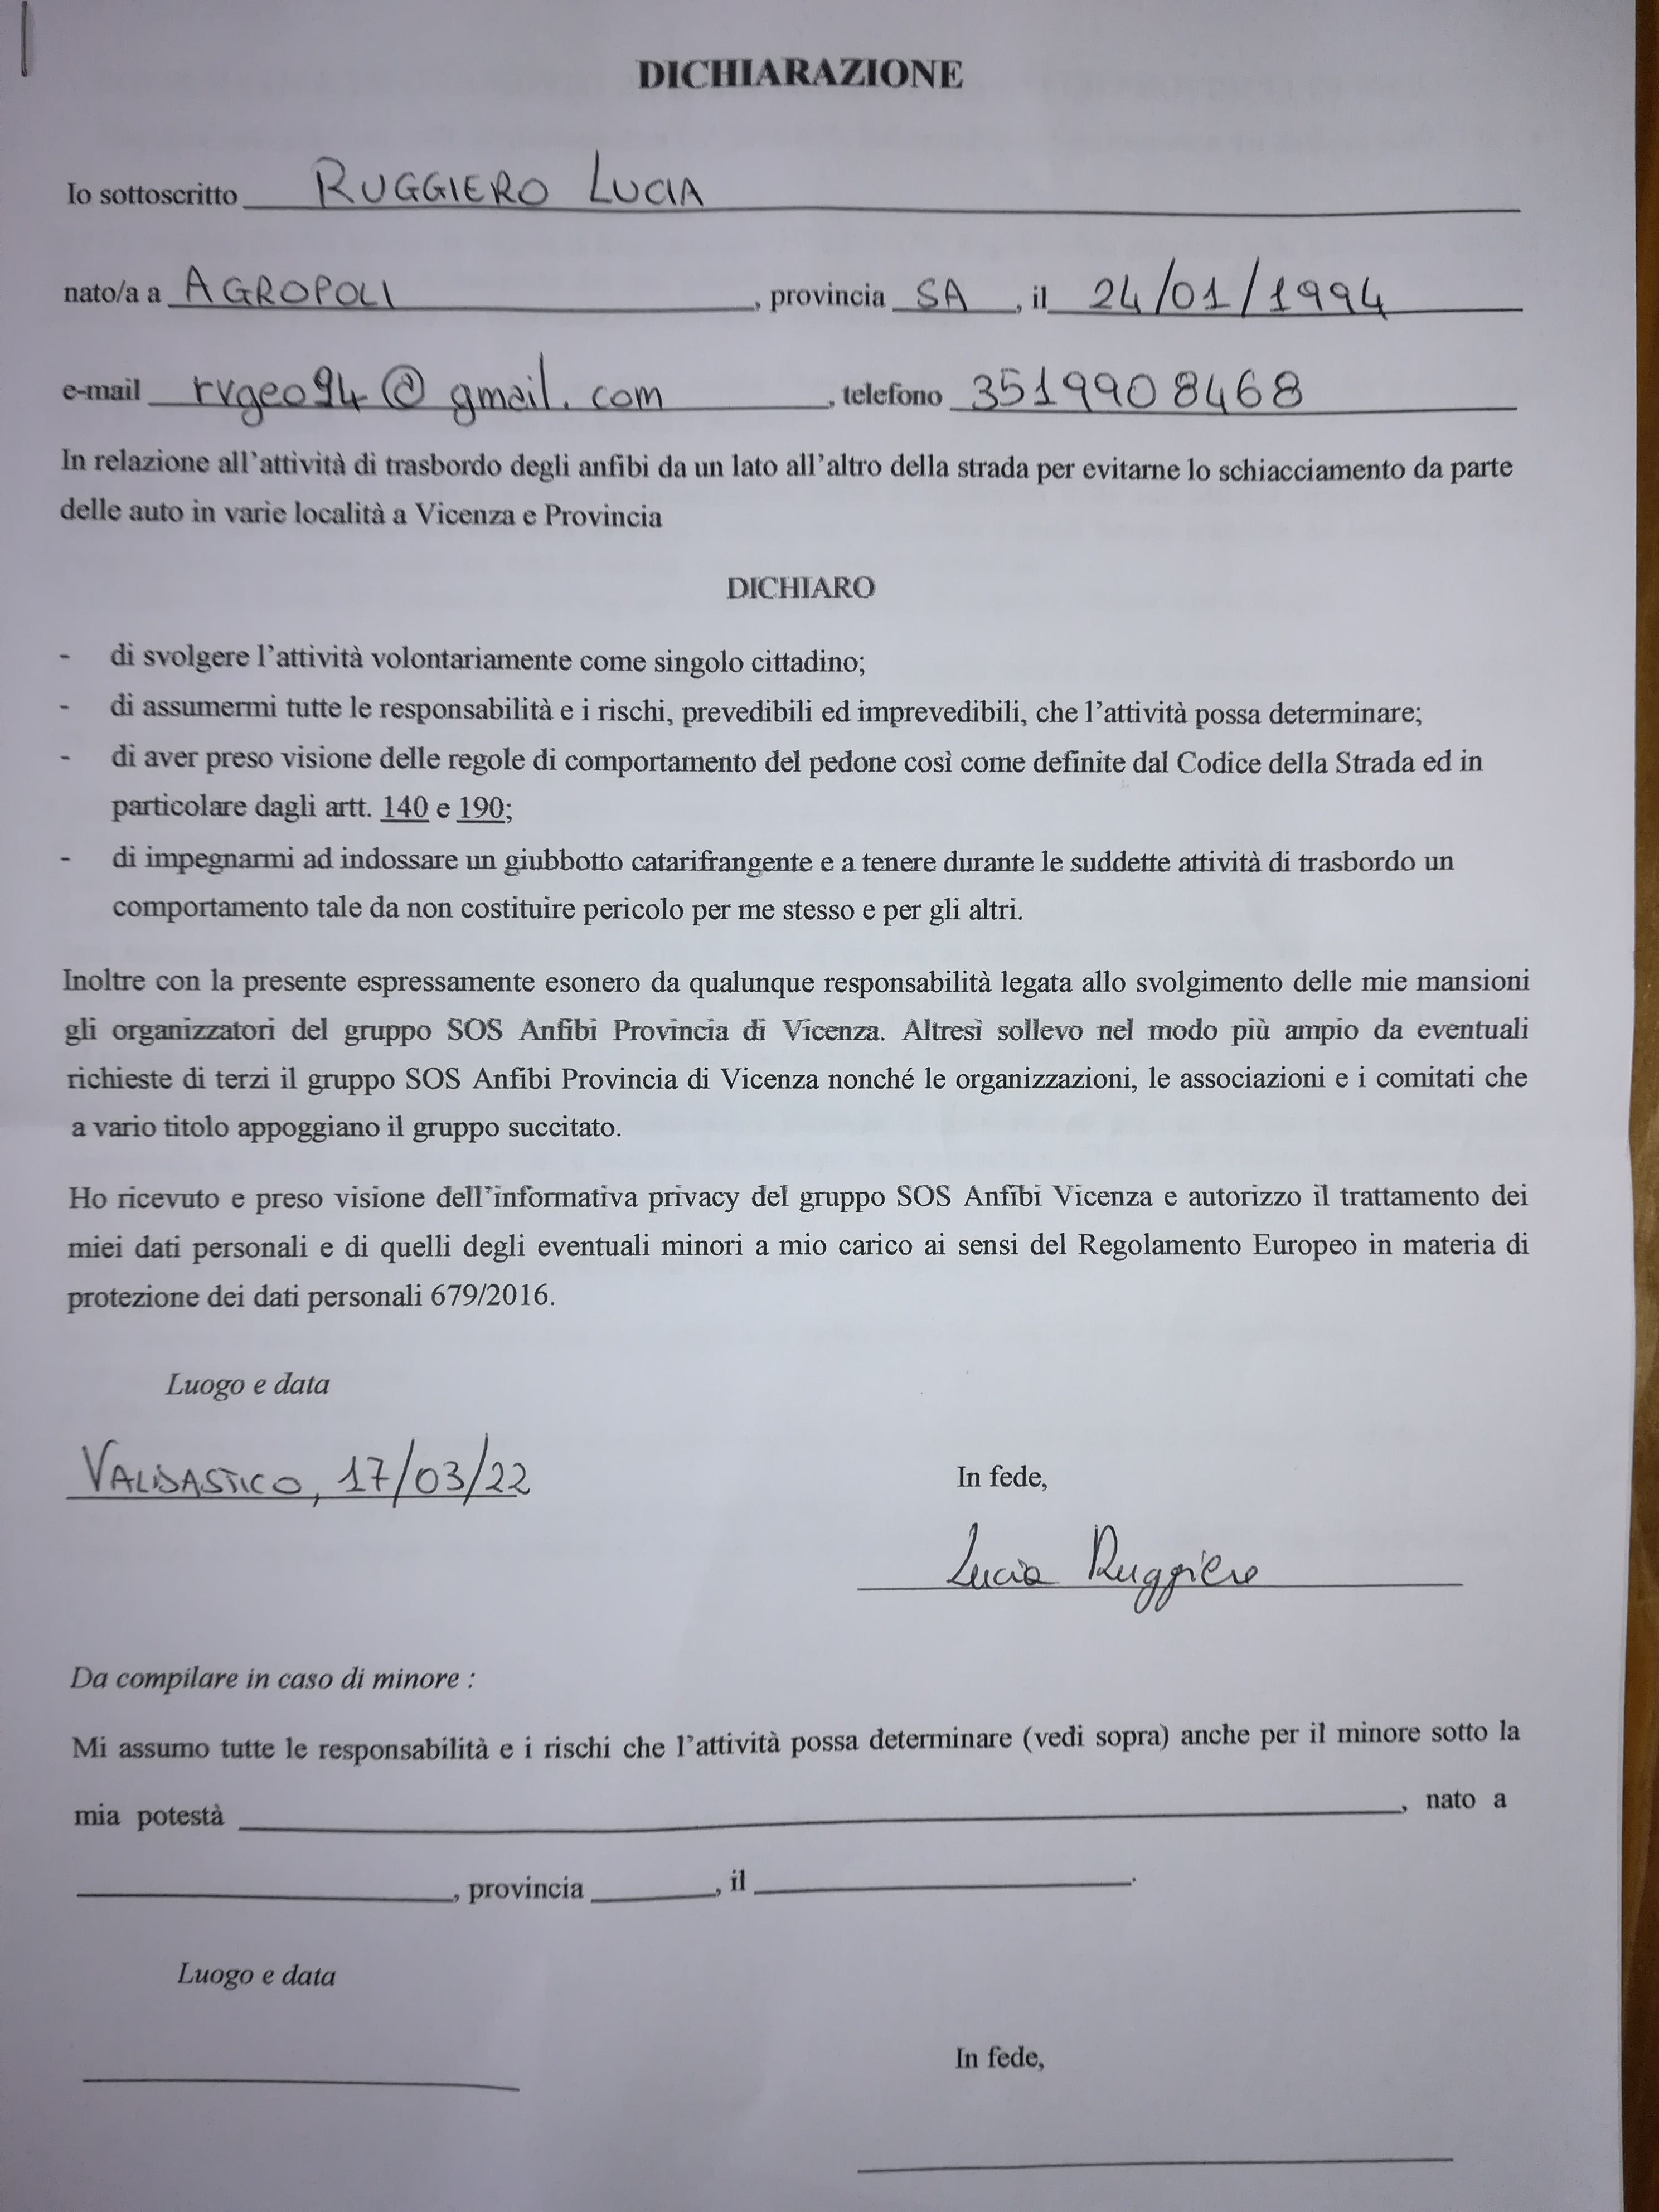 DICHIARAZIONE
Io sottoscritto RUGGIERO LUCIA
nato/a a AGROPOLI, provincia SA, il 24/01/1994
e-mail rvgeo94@gmail.com, telefono 3519908468
In relazione all'attività di trasbordo degli anfibi da un lato all'altro della strada per evitarne lo schiacciamento da parte
delle auto in varie località a Vicenza e Provincia
DICHIARO
- di svolgere l'attività volontariamente come singolo cittadino;
- di assumermi tutte le responsabilità e i rischi, prevedibili ed imprevedibili, che l'attività possa determinare;
- di aver preso visione delle regole di comportamento del pedone così come definite dal Codice della Strada ed in
particolare dagli artt. 140 e 190;
- di impegnarmi ad indossare un giubbotto catarifrangente e a tenere durante le suddette attività di trasbordo un
comportamento tale da non costituire pericolo per me stesso e per gli altri.
Inoltre con la presente espressamente esonero da qualunque responsabilità legata allo svolgimento delle mie mansioni
gli organizzatori del gruppo SOS Anfibi Provincia di Vicenza. Altresì sollevo nel modo più ampio da eventuali
richieste di terzi il gruppo SOS Anfibi Provincia di Vicenza nonché le organizzazioni, le associazioni e i comitati che
a vario titolo appoggiano il gruppo succitato.
Ho ricevuto e preso visione dell'informativa privacy del gruppo SOS Anfibi Vicenza e autorizzo il trattamento dei
miei dati personali e di quelli degli eventuali minori a mio carico ai sensi del Regolamento Europeo in materia di
protezione dei dati personali 679/2016.
Luogo e data
VALDASTICO, 17/03/22
In fede,
Lucia Ruggiero
Da compilare in caso di minore :
Mi assumo tutte le responsabilità e i rischi che l'attività possa determinare (vedi sopra) anche per il minore sotto la
mia potestà , nato a
, provincia , il .
Luogo e data
In fede,